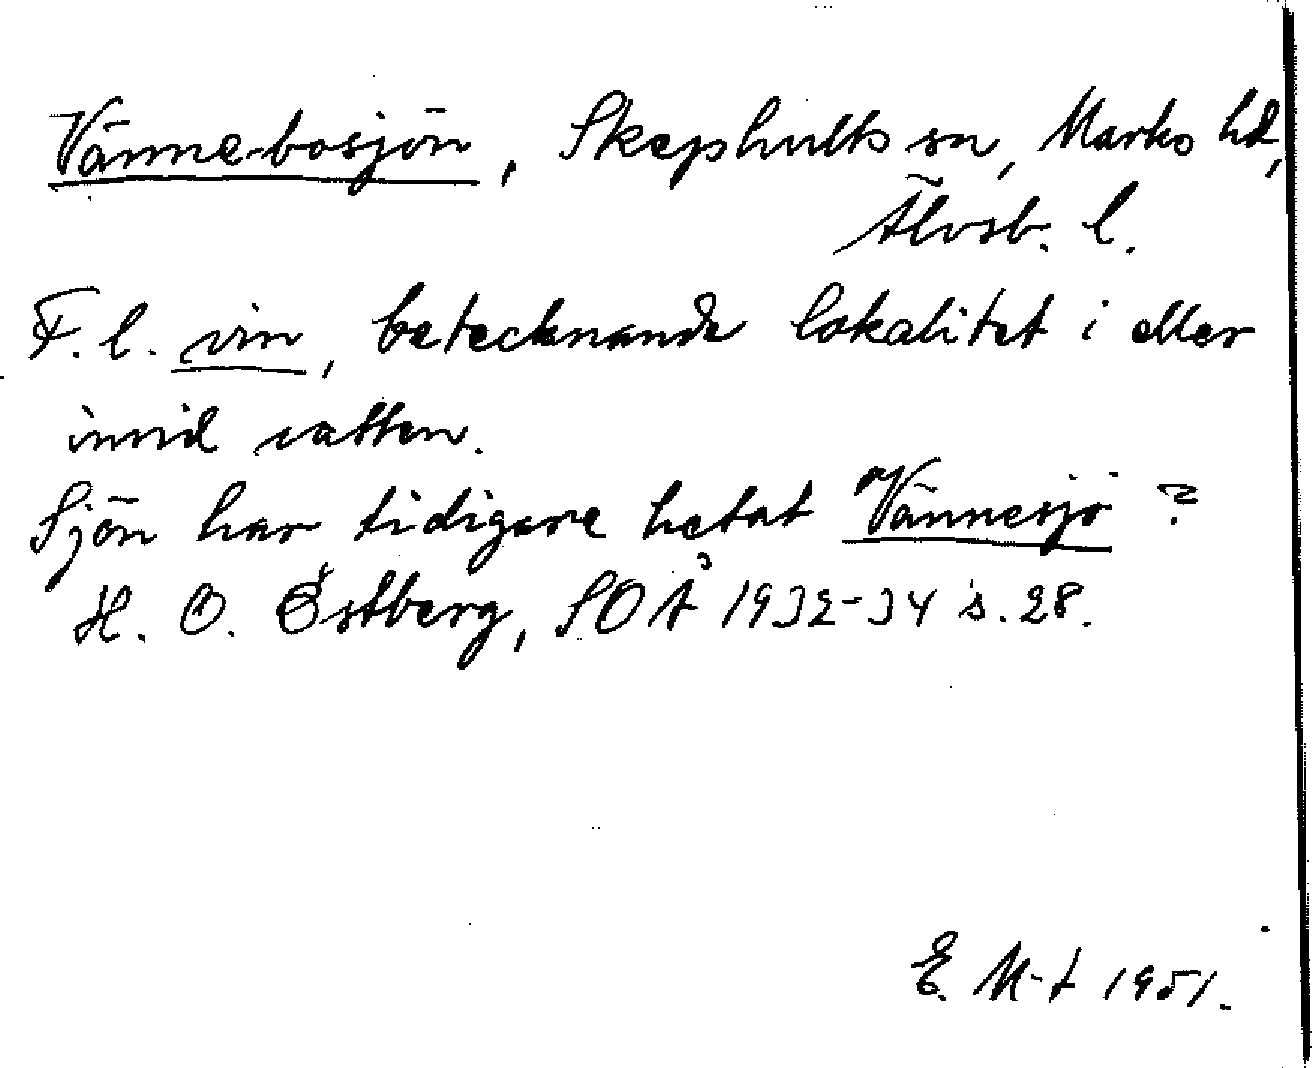 Vännebosjön, Skephults sn, Marks hd,
Älvsb. l.
F. l. vin, betecknande lokalitet i eller
invid vatten.
Sjön har tidigare hetat Vännesjö ?
H. O. Östberg, SOÅ 1932-34 s. 28.
E. M-t 1951.